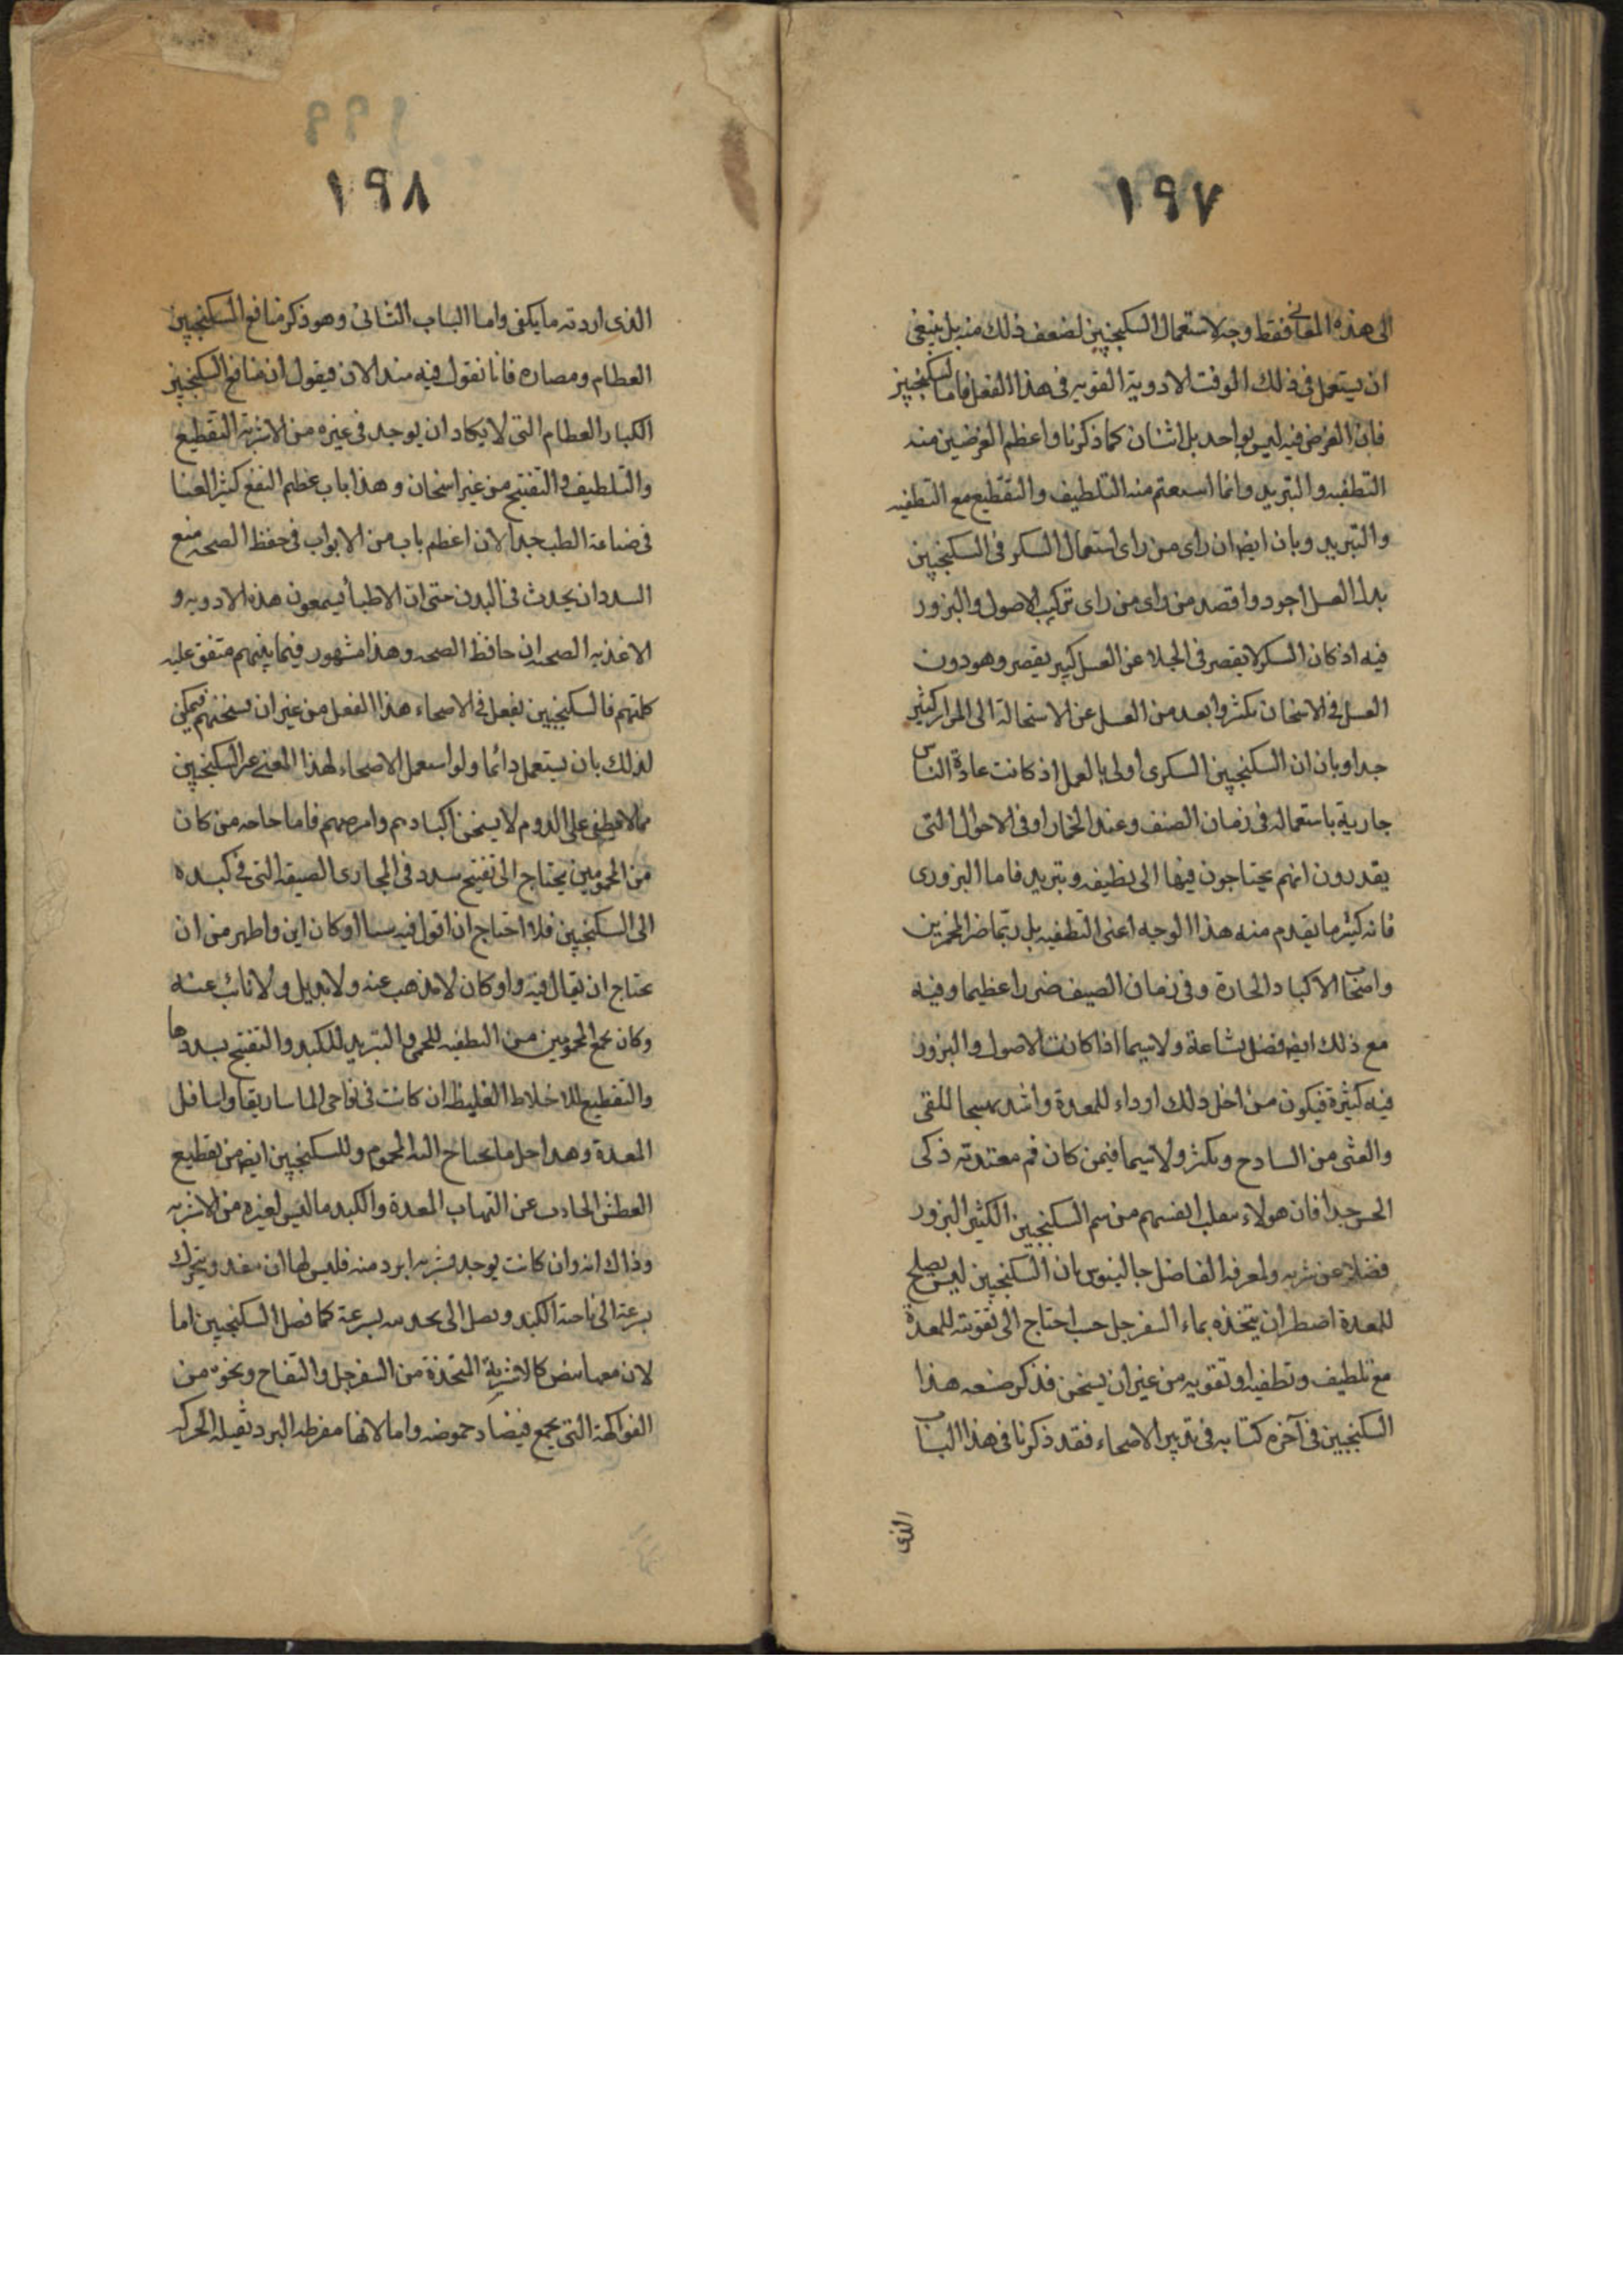 ١٩٧
الى هذه المعانى فقط وجه لاستعمال السكنجبين لضعف ذلك منه بل ينبغى
ان يستعمل فى ذلك الوقت الادوية القويه فى هذا الفعل فاما السكنجبين
فان الغرض فيه ليس بواحد بل اثنان كما ذكرنا واعظم الغرضين منه
التطفيه والتبريد وانما التلطيف والتقطيع مع التطفيه
والتبريد وبان ايضا ان راى من راى استعمال السكر فى السكنجبين
بدل العسل اجود واقصد من راى من راى تركيب الاصول والبزور
فيه اذ كان السكر لا يقصر فى الجلا عن العسل كبير يقصر وهو دون
العسل فى الاسخان بكثير وابعد من العسل عن الاستحالة الى المرار كثير
جدا وبان ان السكنجبين السكرى اولى بالعمل اذ كانت عادة الناس
جارية باستعماله فى زمان الصيف وعند الخمار او فى الاحوال التى
يقدرون انهم يحتاجون فيها الى تطفيه وتبريد فاما البزورى
فانه كثير ما يقدم منه هذا الوجه اعنى التطفيه بل ربما ضر المخمرين
واصحاب الاكباد الحارة وفى زمان الصيف ضررا عظيما وفيه
مع ذلك ايضا فضل بشاعة ولاسيما اذا كانت الاصول والبزور
فيه كثيرة فيكون من اجل ذلك ارداء للمعدة واشد تهييجا للقى
والغثى من السادح وبكثر ولاسيما فيمن كان فم معتدته ذكى
الحس جدا فان هولاء انفسهم من شم السكنجبين الكثير البزور
فضلا عن شربه ولمعرفه الفاضل جالينوس بان السكنجبين ليس يصلح
للمعدة اضطر ان يتخذه بماء السفرجل حب احتاج الى تقويته للمعدة
مع تلطيف وتطفيه او تقويه من غير ان يسخن فذكر صنعه هذا
السكنجبين فى آخره كتابه فى تدبير الاصحاء فقد ذكرنا فى هذا الباب
الذى
١٩٨
الذى اردته ما يكفى واما الباب الثانى وهو ذكر منافع السكنجبين
العظام ومضاره فانا نقول فيه منذ الان فيقول ان منافع السكنجبين
الكبار العظام التى لا يكاد ان يوجد فى غيره من الاشربة التقطيع
والتلطيف والتفتيح من غير اسخان وهذا باب عظيم النفع كثير الغنا
فى صناعة الطب جدا لان اعظم باب من الابواب فى حفظ الصحه منع
السدد ان يحدث فى البدن حتى ان الاطبأ يسمون هذه الادويه و
الاغذيه الصحه ان حافظ الصحه وهذا مشهور فيما بينهم متفق عليه
كلمتهم فالسكنجبين يفعل فى الاصحاء هذا الفعل من غير ان يسخنهم فيمكن
لذلك بان يستعمل دائما ولو استعمل الاصحاء لهذا المعنى غير السكنجبين
مما لا يطفى على الدوم لا يسخن اكبادهم وامرضهم فاما حاجه من كان
من المحمومين يحتاج الى تفتيح سدد فى المجارى الضيقه التى فى كبده
الى السكنجبين فلا احتاج ان اقول فيه شيا او كان ابن واظهر من ان
يحتاج ان يقال فيه واو كان لا مذهب عنه ولا بديل ولا نائب عنه
وكان يجمع المحمومين من التطفيه للحمى والتبريد للكبد والتفتيح بسددها
والتقطيع للاخلاط الغليظه ان كانت فى نواحى الماساريقا واسافل
المعدة وهذا جل ما يحتاج اليه المحموم وللسكنجبين ايضا من تقطيع
العطش الحادث عن التهاب المعدة والكبد ما ليس لغيره من الاشربه
وذاك انه وان كانت يوجد شربه ابرد منه فليس لها ان ينفد ويتحرك
بسرعة الى ناحية الكبد ويصل الى بسرعة كما فصل السكنجبين اما
لان معها كالاشربة المتخذة من السفرجل والتفاح ونحوه من
الفواكهة التى يجمع قبضا وحموضه واما لانها مفرطه البرد ثقيله الحركه